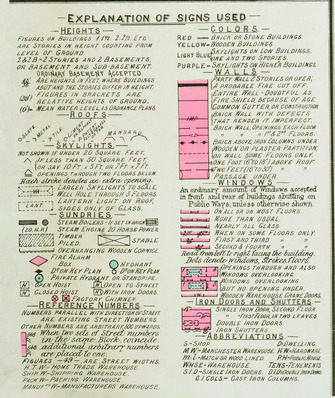 EXPLANATION OF SIGNS USED
HEIGHTS
ARE STORIES IN HEIGHT COUNTING FROM
LEVEL OF GROUND.
2 & 2B = 2 STORIES AND 2 BASEMENTS,
OR BASEMENT AND SUB-BASEMENT.
ORDINARY BASEMENT ACCEPTED
ARE HEIGHTS IN FEET WHERE BUILDINGS
ABUT AND THE STORIES DIFFER IN HEIGHT.
FIGURES IN BRACKETS ARE
RELATIVE HEIGHTS OF GROUND.
ROOFS
MANSARD
SKYLIGHTS
NOT SHOWN IF UNDER 20 SQUARE FEET.
IF LESS THAN 50 SQUARE FEET,
OPENINGS THROUGH TWO FLOORS BELOW
LARGER SKYLIGHTS TO SCALE
WELL HOLE THROUGH 3 FLOORS
LANTERN LIGHT OR ROOF,
SIDES ONLY OF GLASS
SUNDRIES
STEAM ENGINE 20 HORSE POWER
TIMBER
PILED. STABLE
OVERHANGING WOODEN CORNICE
FIRE ALARM
BOX HYDRANT
PRIVATE HYDRANT OR STANDPIPE.
OPEN HOIST OPEN TO STREET
CLOSED HOIST WITH IRON DOORS.
FACTORY CHIMNEY
REFERENCE NUMBERS
NUMBERS PARALLEL WITH DIRECTION OF STREET
ARE EXISTING STREET NUMBERS
OTHER NUMBERS ARE ARBITRARY, 500 UPWARDS
When two sets of Street Numbers
in the same Block, coincide
additional arbitrary numbers
are placed to one.
FIGURES - 49 - ARE STREET WIDTHS.
H.T.W- HOME TRADE WAREHOUSE
SHIP W- SHIPPING WAREHOUSE
PACK W- PACKING WAREHOUSE
MANUF W- MANUFACTURERS WAREHOUSE.
COLORS
RED BRICK OR STONE BUILDINGS.
YELLOW WOODEN BUILDINGS
LIGHT BLUE SKYLIGHTS ON LOW BUILDINGS,
ONE AND TWO STORIES.
PURPLE SKYLIGHTS ON HIGHER BUILDINGS
WALLS
PARTY WALL 2 STORIES OR OVER,
A PROBABLE FIRE CUT OFF.
FIRE SHIELD BECAUSE OF AGE
COMMON GUTTER OR CONSTRUCTION
BRICK WALL WITH DEFECTS
THAT RENDER IT IMPERFECT.
BRICK WALL, OPENINGS EACH FLOOR
BRICK ABOVE, IRON COLUMNS UNDER
WOODEN OR PLASTER PARTITION,
OR WALL SOME FLOORS ONLY
PASSAGE UNDER
WINDOWS
An ordinary amount of Windows accepted
in front and rear of buildings abutting on
Public Ways, unless otherwise shown.
ON ALL OR MOST FLOORS.
MORE THAN USUAL
NEARLY ALL GLASS
WHEN ON SOME FLOORS ONLY
FIRST AND THIRD "
SECOND & FOURTH "
Read from left to right facing the building
Dots denote windows, Strokes floors
OPENINGS THROUGH AND ALSO
WINDOWS OVERLOOKING
WINDOWS OVERLOOKING
BUT NO OPENING UNDER.
IRON DOORS AND SHUTTERS
SINGLE IRON DOOR, SECOND FLOOR
DOUBLE IRON DOORS
IRON SHUTTERS.
ABBREVIATIONS
S-SHOP. D-DWELLING.
M W- MANCHESTER WAREHOUSE. HW-HARDWARE
WHSE-WAREHOUSE. TENS-TENEMENTS
C.I.COLS- CAST IRON COLUMNS.